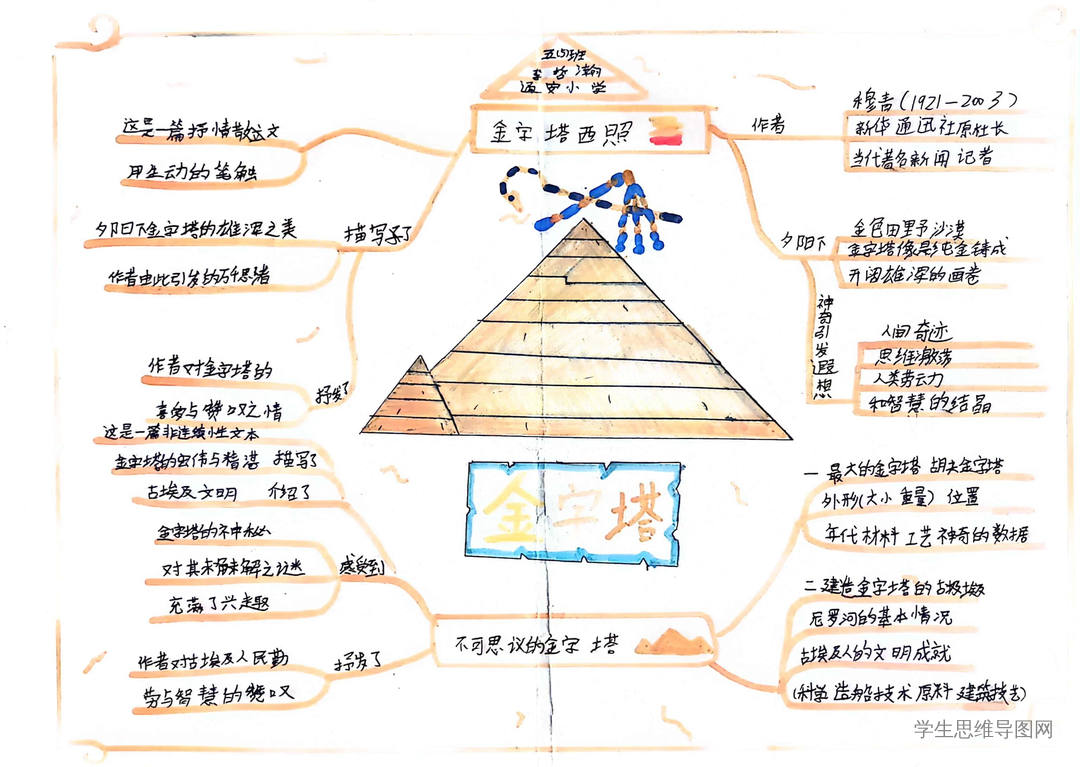 五(5)班
李哲瀚
通安小学
金字塔西照
这是一篇抒情散文
用生动的笔触
夕阳下金字塔的雄浑之美
作者由此引发的万千思绪
描写了
作者对金字塔的
喜爱与赞叹之情
抒发了
作者
穆青(1921—2003)
新华通迅社原社长
当代著名新闻记者
夕阳下
金色田野沙漠
金字塔像是纯金铸成
开阔雄浑的画卷
神奇引发遐想
人间奇迹
思维激荡
人类劳动力
和智慧的结晶
金字塔
这是一篇非连续性文本
金字塔的宏伟与精湛 描写了
古埃及文明 介绍了
金字塔的神秘
对其未解之谜
充满了兴趣
感受到
作者对古埃及人民勤
劳与智慧的赞叹
抒发了
不可思议的金字塔
一 最大的金字塔 胡夫金字塔
外形(大小 重量) 位置
年代 材料 工艺 神奇的数据
二 建造金字塔的古埃及
尼罗河的基本情况
古埃及人的文明成就
(科学 造船技术 原料 建筑技艺)
学生思维导图网